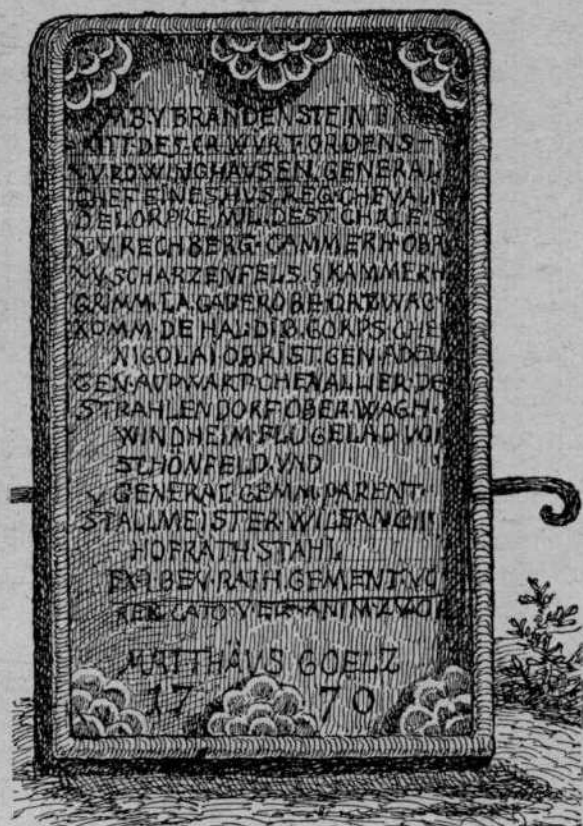 MB·V BRANDENSTEIN T
RITT·DES·GR·WURT·ORDENS-
V·BOWINGHAUSEN·GENERAL
CHEF EINES HUS·REG·CHEVALI
DELORPRE MIL·DEST·CHALE·S
V·RECHBERG·CAMMERH·OBR
V·SCHARZENFELS·S KAMMERH
GRIMM·LAGADEROBE
KOMM·DE HAL·DI CORPS CHE
NIGOLAI OBRIST·GEN·ADEU
GEN·AUPWART·CHEVALLIER·DE
STRAHLENDORF·OBER·WAGH·
WINDHEIM·FLUGELAD VO
SCHÖNFELD·VND
V GENERAL GEMM·PARENT·
STALLMEISTER·WILFANG
HOFRATH·STAHL
RATH·GEMENT·VO
CATO·V
MATTHÄVS GOELZ
17 70